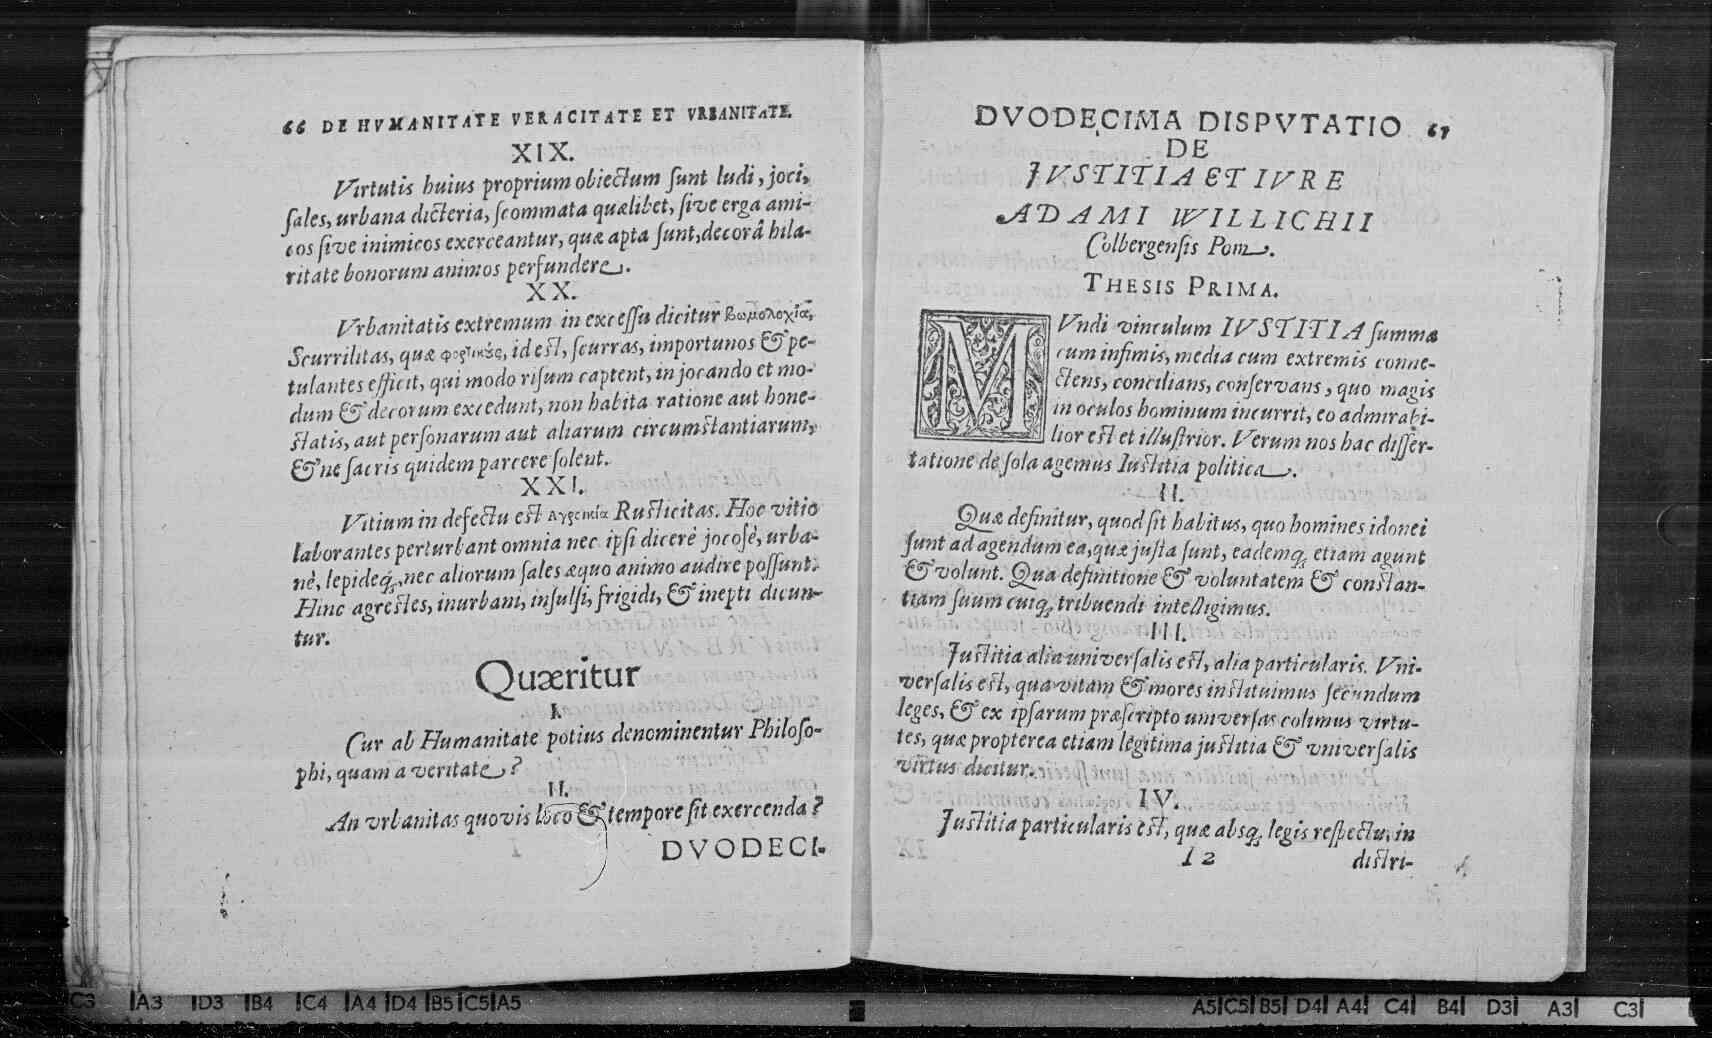 66 DE HVMANITATE VERACITATE ET VRBANITATE.
XIX.
Virtutis huius proprium obiectum sunt ludi, joci,
sales, urbana dicteria, scommata quælibet, sive erga ami-
cos sive inimicos exerceantur, quæ apta sunt, decorâ hila-
ritate bonorum animos perfundere.
XX.
Vrbanitatis extremum in excessu dicitur βωμολοχία,
Scurrilitas, quæ φορτικὸς, id est, scurras, importunos & pe-
tulantes efficit, qui modo risum captent, in jocando et mo-
dum & decorum excedunt, non habita ratione aut hone-
statis, aut personarum aut aliarum circumstantiarum,
& ne sacris quidem parcere solent.
XXI.
Vitium in defectu est Αγροικία Rusticitas. Hoc vitio
laborantes perturbant omnia nec ipsi dicerè jocosè, urba-
nè, lepideq́;, nec aliorum sales æquo animo audire possunt.
Hinc agrestes, inurbani, insulsi, frigidi, & inepti dicun-
tur.
Quæritur
I.
Cur ab Humanitate potius denominentur Philoso-
phi, quam a veritate?
II.
An vrbanitas quovis loco & tempore sit exercenda?
DVODECI-
DVODECIMA DISPVTATIO 67
DE
IVSTITIA ET IVRE
ADAMI WILLICHII
Colbergensis Pom.
THESIS PRIMA.
MVndi vinculum IVSTITIA summa
cum infimis, media cum extremis conne-
ctens, concilians, conservans, quo magis
in oculos hominum incurrit, eo admirabi-
lior est et illustrior. Verum nos hac disser-
tatione de sola agemus Iustitia politica.
II.
Quæ definitur, quod sit habitus, quo homines idonei
sunt ad agendum ea, quæ justa sunt, eademq; etiam agunt
& volunt. Qua definitione & voluntatem & constan-
tiam suum cuiq; tribuendi intelligimus.
III.
Justitia alia universalis est, alia particularis. Vni-
versalis est, qua vitam & mores instituimus secundum
leges, & ex ipsarum præscripto universas colimus virtu-
tes, quæ propterea etiam legitima justitia & vniversalis
virtus dicitur.
IV.
Justitia particularis est, quæ absq; legis respectu, in
I 2 distri-
C3 A3 D3 B4 C4 A4 D4 B5 C5 A5
A5 C5 B5 D4 A4 C4 B4 D3 A3 C3